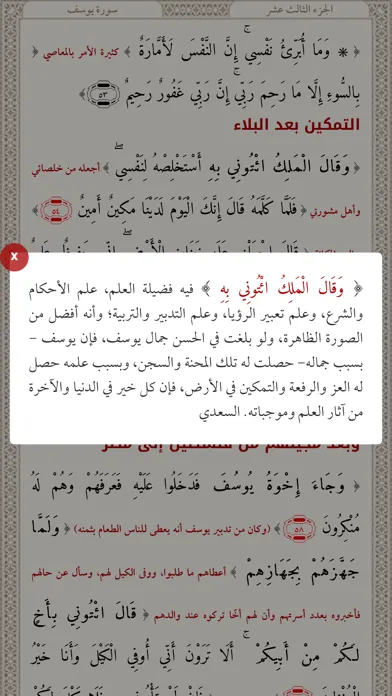 الجزء الثالث عشر
سورة يوسف
﴿ ۞ وَمَا أُبَرِّئُ نَفْسِي ۚ إِنَّ النَّفْسَ لَأَمَّارَةٌ ﴾ كثيرة الأمر بالمعاصي ﴿
بِالسُّوءِ إِلَّا مَا رَحِمَ رَبِّي ۚ إِنَّ رَبِّي غَفُورٌ رَحِيمٌ ٥٣ ﴾
التمكين بعد البلاء
﴿ وَقَالَ الْمَلِكُ ائْتُونِي بِهِ أَسْتَخْلِصْهُ لِنَفْسِي ۖ ﴾ أجعله من خلصائي
وأهل مشورتي ﴿ فَلَمَّا كَلَّمَهُ قَالَ إِنَّكَ الْيَوْمَ لَدَيْنَا مَكِينٌ أَمِينٌ ٥٤ ﴾
X
﴿ وَقَالَ الْمَلِكُ ائْتُونِي بِهِ ﴾ فيه فضيلة العلم، علم الأحكام
والشرع، وعلم تعبير الرؤيا، وعلم التدبير والتربية؛ وأنه أفضل من
الصورة الظاهرة، ولو بلغت في الحسن جمال يوسف، فإن يوسف –
بسبب جماله– حصلت له تلك المحنة والسجن، وبسبب علمه حصل
له العز والرفعة والتمكين في الأرض، فإن كل خير في الدنيا والآخرة
من آثار العلم وموجباته. السعدي
﴿ وَجَاءَ إِخْوَةُ يُوسُفَ فَدَخَلُوا عَلَيْهِ فَعَرَفَهُمْ وَهُمْ لَهُ
مُنْكِرُونَ ٥٨ ﴾ (وكان من تدبير يوسف أنه يعطى للناس الطعام بثمنه) ﴿ وَلَمَّا
جَهَّزَهُمْ بِجَهَازِهِمْ ﴾ أعطاهم ما طلبوا، ووفى الكيل لهم، وسأل عن حالهم
فأخبروه بعدد أسرتهم وأن لهم أخًا تركوه عند والدهم ﴿ قَالَ ائْتُونِي بِأَخٍ
لَكُمْ مِنْ أَبِيكُمْ ۚ أَلَا تَرَوْنَ أَنِّي أُوفِي الْكَيْلَ وَأَنَا خَيْرُ